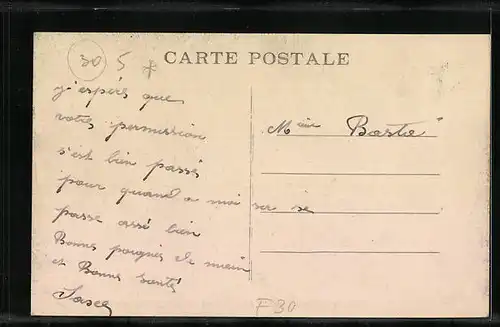 30 5
CARTE POSTALE
j'espérs que
votre permission
s'est bien passé
pour quand a moi sa se
passe assé bien
Bonnes poignés de main
et Bonne santé
Mme Bastié
F30